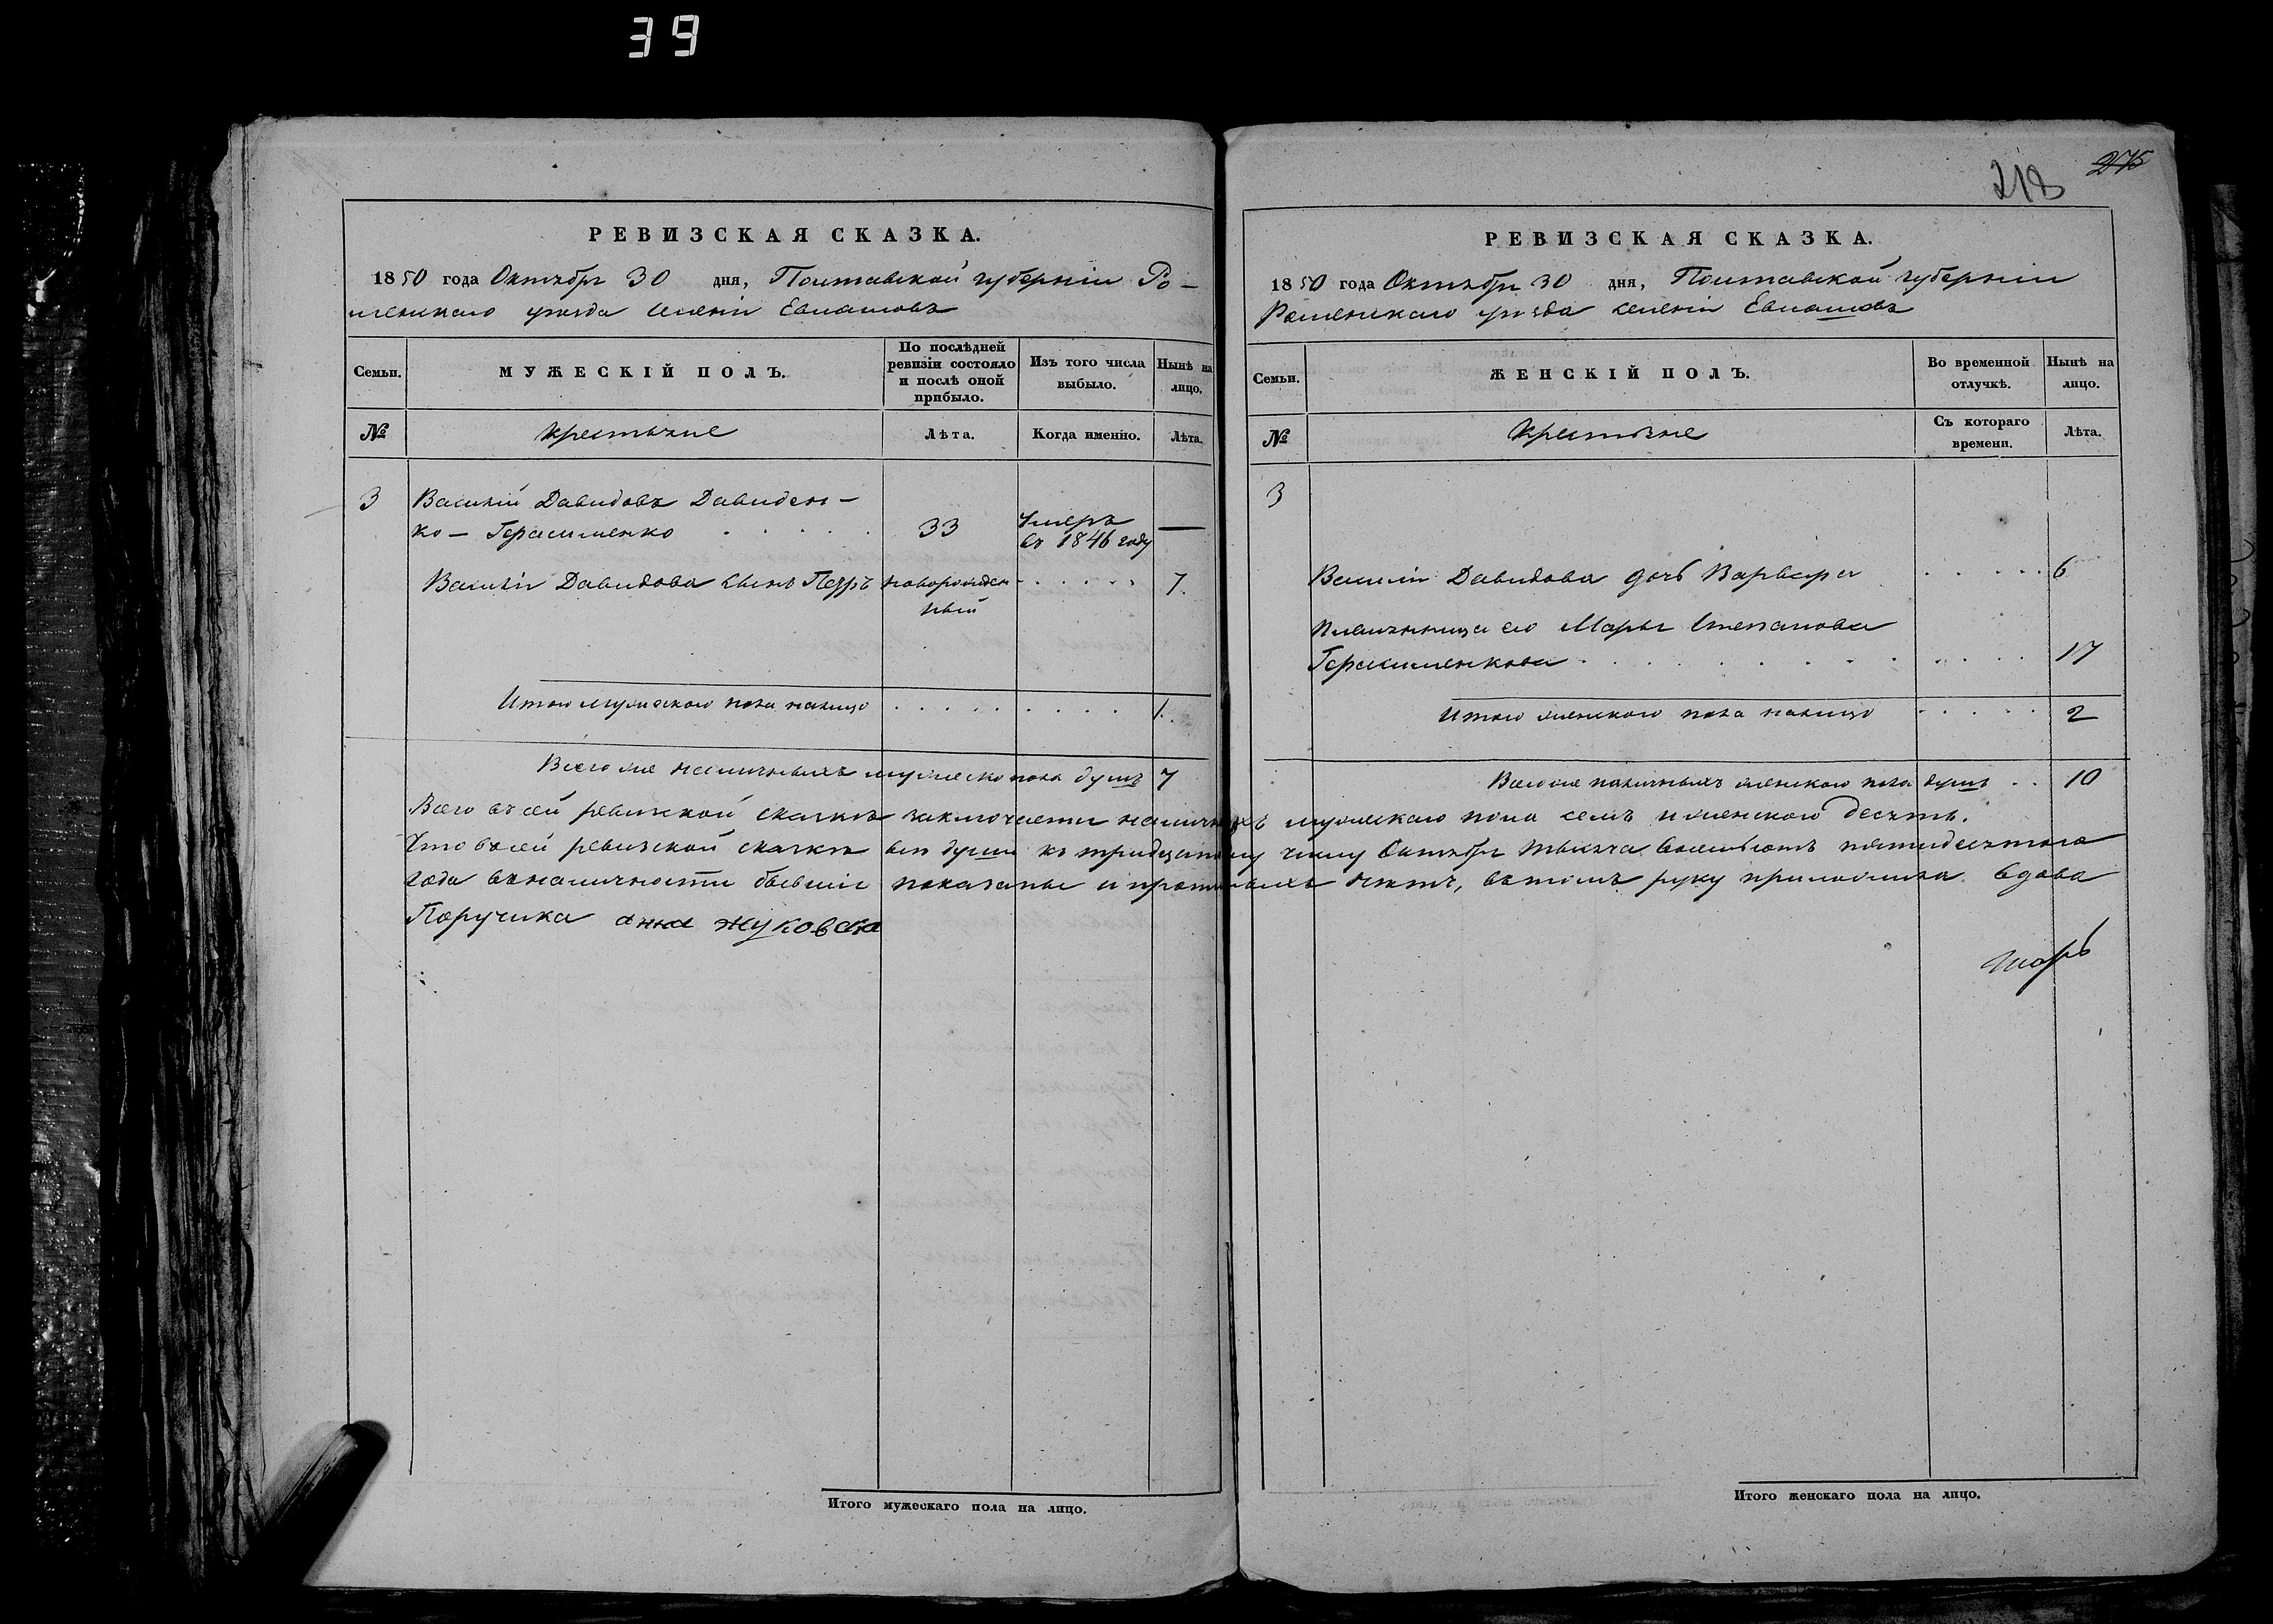 39
218
275
РЕВИЗСКАЯ СКАЗКА.
1850 года Октября 30 дня, Полтавской губерніи Ро-
менскаго уезда селенія Евлашовъ
Семьи.
МУЖЕСКІЙ ПОЛЪ.
По послѣдней ревизіи состояло и послѣ оной прибыло.
Изъ того числа выбыло.
Нынѣ на лицо.
№
Крестьяне
Лѣта.
Когда именно.
Лѣта.
3 Василій Давидовъ Давиден-
ко - Герасименко 33 Умеръ въ 1846 году —
Василія Давидова сынъ Петръ новорожден- 7.
ный
Итого мужескаго пола налицо 1.
Всего же наличныхъ мужеска пола душъ 7
РЕВИЗСКАЯ СКАЗКА.
1850 года Октября 30 дня, Полтавской губерніи
Роменскаго уезда селенія Евлашовъ
Семьи.
ЖЕНСКІЙ ПОЛЪ.
Во временной отлучкѣ.
Нынѣ на лицо.
№
Крестьяне
Съ котораго времени.
Лѣта.
3
Василія Давидова дочь Варвара 6
Племянница его Марья Степанова
Герасименкова 17
Итого женскаго пола налицо 2
Всего же наличныхъ женскаго пола душъ 10
Всего въ сей ревизской сказке заключается наличныхъ мужескаго пола семь и женского десять.
Что въ сей ревизской сказке все души къ тридцатому числу Октября тысяча восемьсотъ пятидесятого
года въ наличности бывшіе показаны и прописныхъ нетъ, въ томъ руку приложила вдова
Поручика анна жуковска
Итого мужескаго пола на лицо.
Итого женскаго пола на лицо.